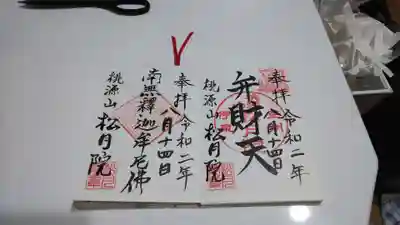 奉拝 令和二年
八月十四日
弁財天
桃源山 松月院
奉拝 令和二年
八月十四日
南無釋迦牟尼佛
桃源山 松月院